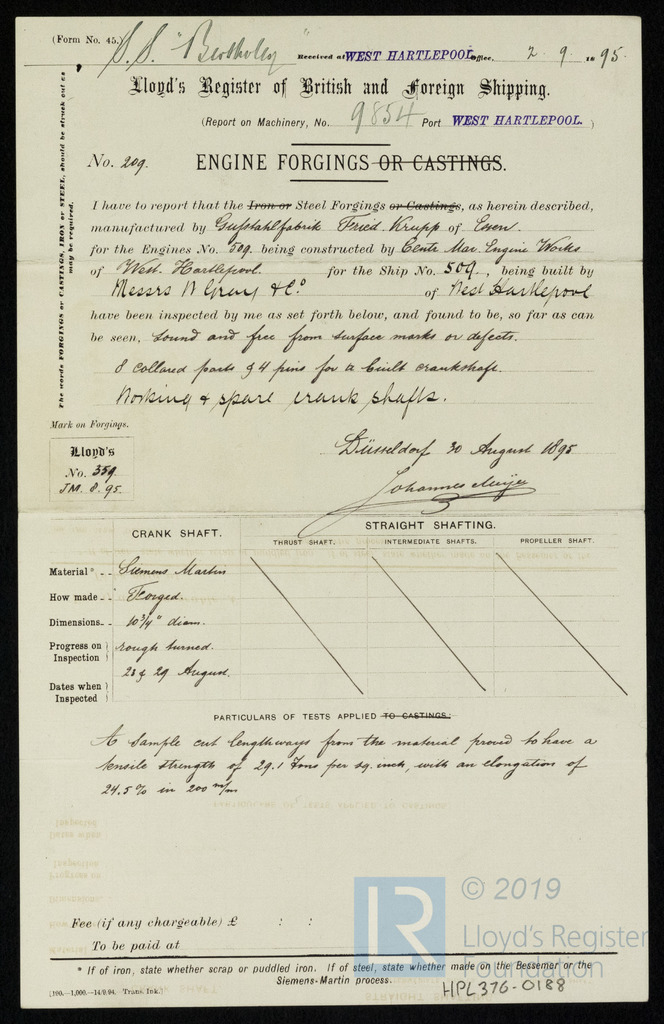 (Form No. 45.) S.S. "Bertholey" Received at WEST HARTLEPOOL Office, 2. 9. 1895.
Lloyd's Register of British and Foreign Shipping.
(Report on Machinery, No. 9854 Port WEST HARTLEPOOL.)
The words FORGINGS or CASTINGS, IRON or STEEL, should be struck out as
may be required.
No. 209. ENGINE FORGINGS OR CASTINGS.
I have to report that the Iron or Steel Forgings or Castings, as herein described,
manufactured by Gußstahlfabrik Fried Krupp of Essen.
for the Engines No. 509. being constructed by Centr Mar. Engine Works
of West. Hartlepool. for the Ship No. 509., being built by
Messrs W Gray & Co. of West Hartlepool
have been inspected by me as set forth below, and found to be, so far as can
be seen, sound and free from surface marks or defects.
8 collared parts & 4 pins for a built crankshaft.
Working & spare crank shafts.
Mark on Forgings.
Lloyd's
No. 359
JM. 8. 95.
Düsseldorf 30 August 1895
Johannes Meyer
CRANK SHAFT. STRAIGHT SHAFTING.
THRUST SHAFT. INTERMEDIATE SHAFTS. PROPELLER SHAFT.
Material* - - Siemens Martin
How made - - Forged.
Dimensions - - 10 3/4" diam.
Progress on Inspection rough turned.
23 & 29 August.
Dates when Inspected
PARTICULARS OF TESTS APPLIED TO CASTINGS.
A sample cut lengthways from the material proved to have a
tensile strength of 29.1 Tons per sq. inch, with an elongation of
24.5% in 200 m/m
Fee (if any chargeable) £ : :
To be paid at
* If of iron, state whether scrap or puddled iron. If of steel, state whether made on the Bessemer or the
Siemens-Martin process.
(100.—1,000.—14/9/94. Trans. Ink.)
HPL376-0188
LR
© 2019
Lloyd's Register
Foundation